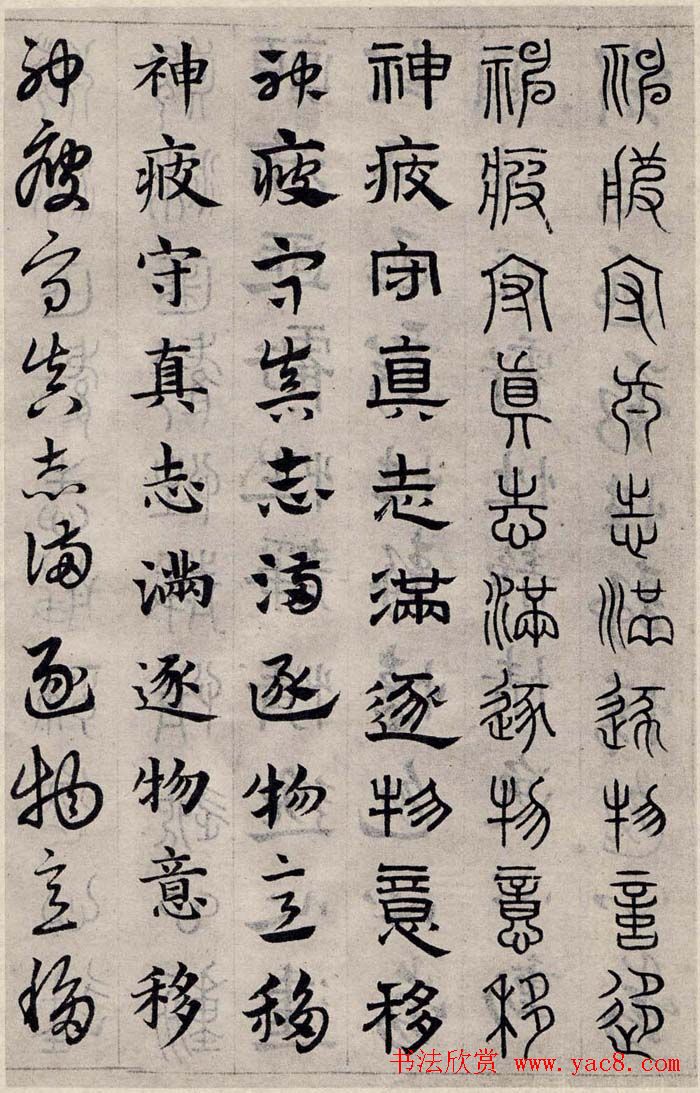 神疲守真志滿逐物意移
神疲守真志滿逐物意移
神疲守真志滿逐物意移
神疲守真志滿逐物意移
神疲守真志滿逐物意移
神疲守真志滿逐物意移
书法欣赏 www.yac8.com